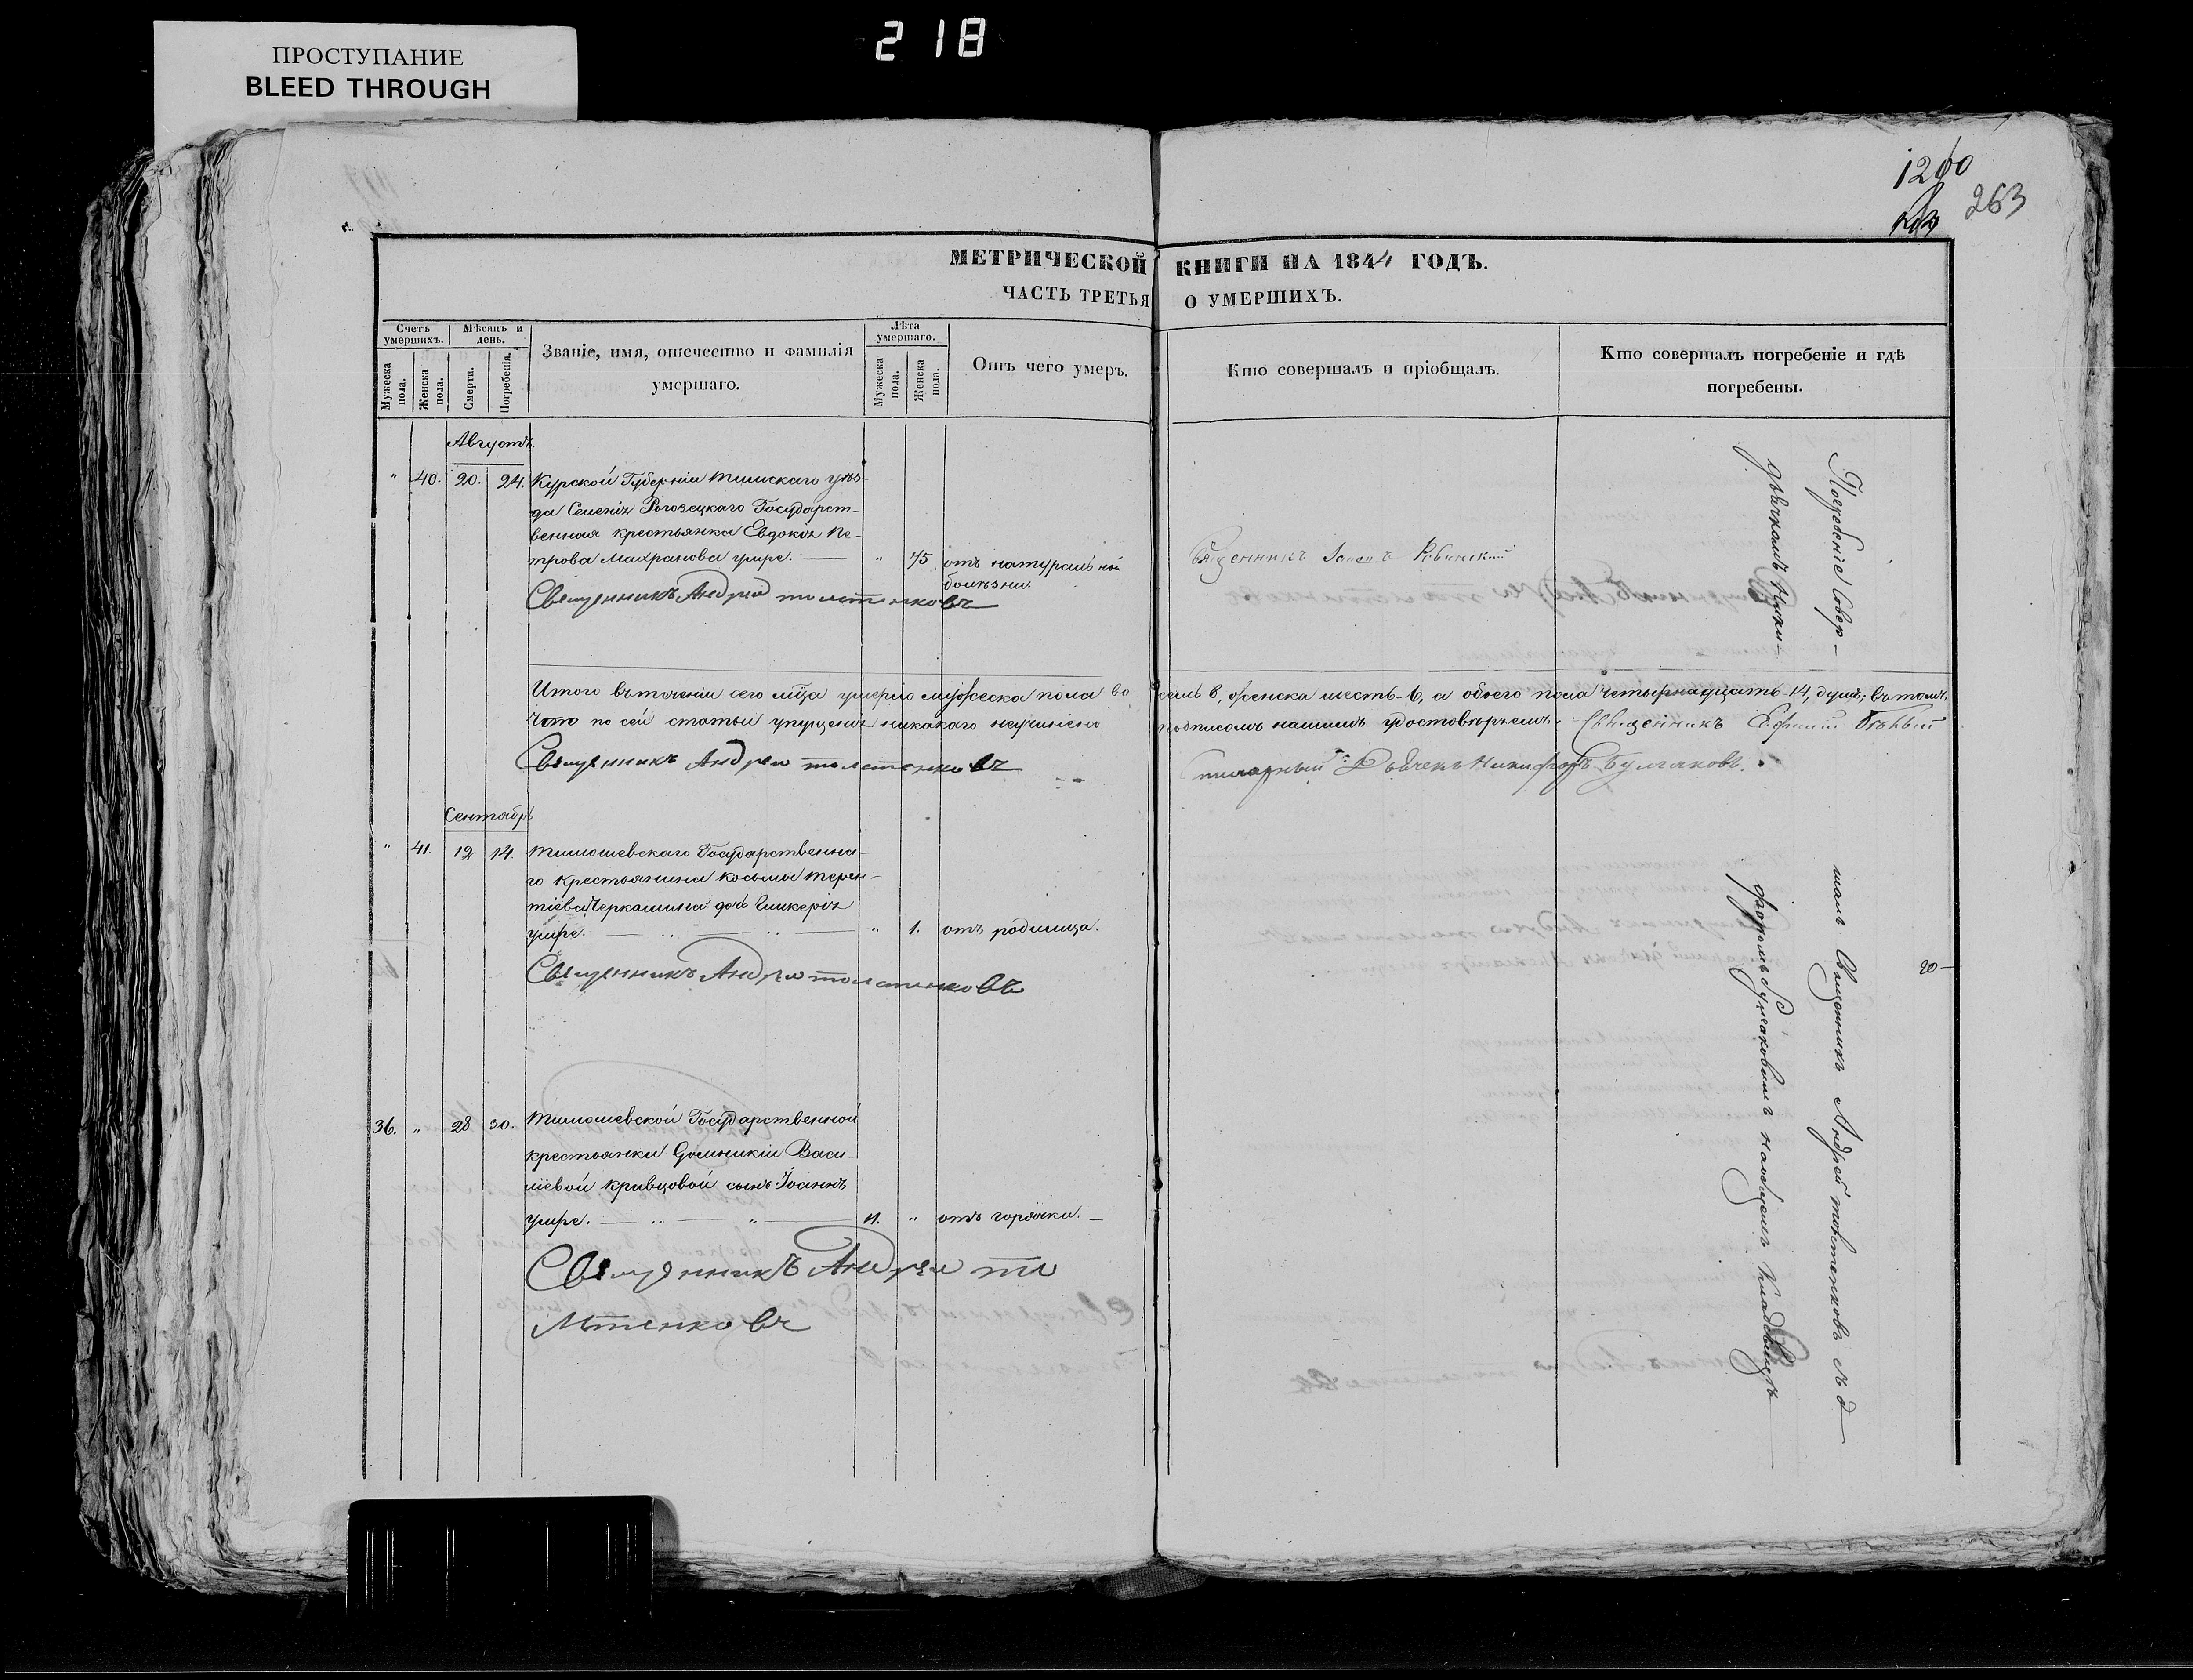 218
ПРОСТУПАНИЕ
BLEED THROUGH
1260
263
МЕТРИЧЕСКОЙ КНИГИ НА 1844 ГОДЪ.
ЧАСТЬ ТРЕТЬЯ О УМЕРШИХЪ.
Счетъ умершихъ.
Мужеска пола.
Женска пола.
Мѣсяцъ и день.
Смерти.
Погребенія.
Званіе, имя, отечество и фамилія умершаго.
Лѣта умершаго.
Мужеска пола.
Женска пола.
Отъ чего умеръ.
Кто совершалъ и пріобщалъ.
Кто совершалъ погребеніе и гдѣ погребены.
Августъ.
" 40. 20. 24. Курской Губерніи Тимскаго уѣз-
да Селенія Рогозецкаго Государст-
венная крестьянка Евдокія Пе-
трова Махранова умре. — " 75 отъ натуральной
болѣзни.
Священникъ Андрей Толстенковъ
Священникъ
Погребеніе Совер-
дьячкомъ Ники-
Итого въ теченіи сего мца умерло мужеска пола восемь 8, женска шесть 6, а обоего пола четырнадцать 14, душъ; въ томъ,
что по сей статьи упущенія никакого неучинено подписомъ нашимъ удостовѣряемъ. Священникъ
Священникъ Андрей Толстенковъ
Дьячекъ Никифоръ Булгаковъ.
Сентябрь
" 41. 12 14. Тимошевскаго Государственна-
го крестьянина Косьмы Терен-
тіева Черкашина дочь Гликерія
умре. — " 1. отъ родимца.
Священникъ Андрей Толстенковъ
20—
шалъ Священникъ Андрей Толстенковъ съ д
форомъ Булгаковымъ на общемъ кладбищѣ
36. " 28 30. Тимошевской Государственной
крестьянки Домникіи Васи-
ліевой Кривцовой сынъ Іоаннъ
умре. — " отъ горячки. —
Священникъ Андрей То
лстенковъ